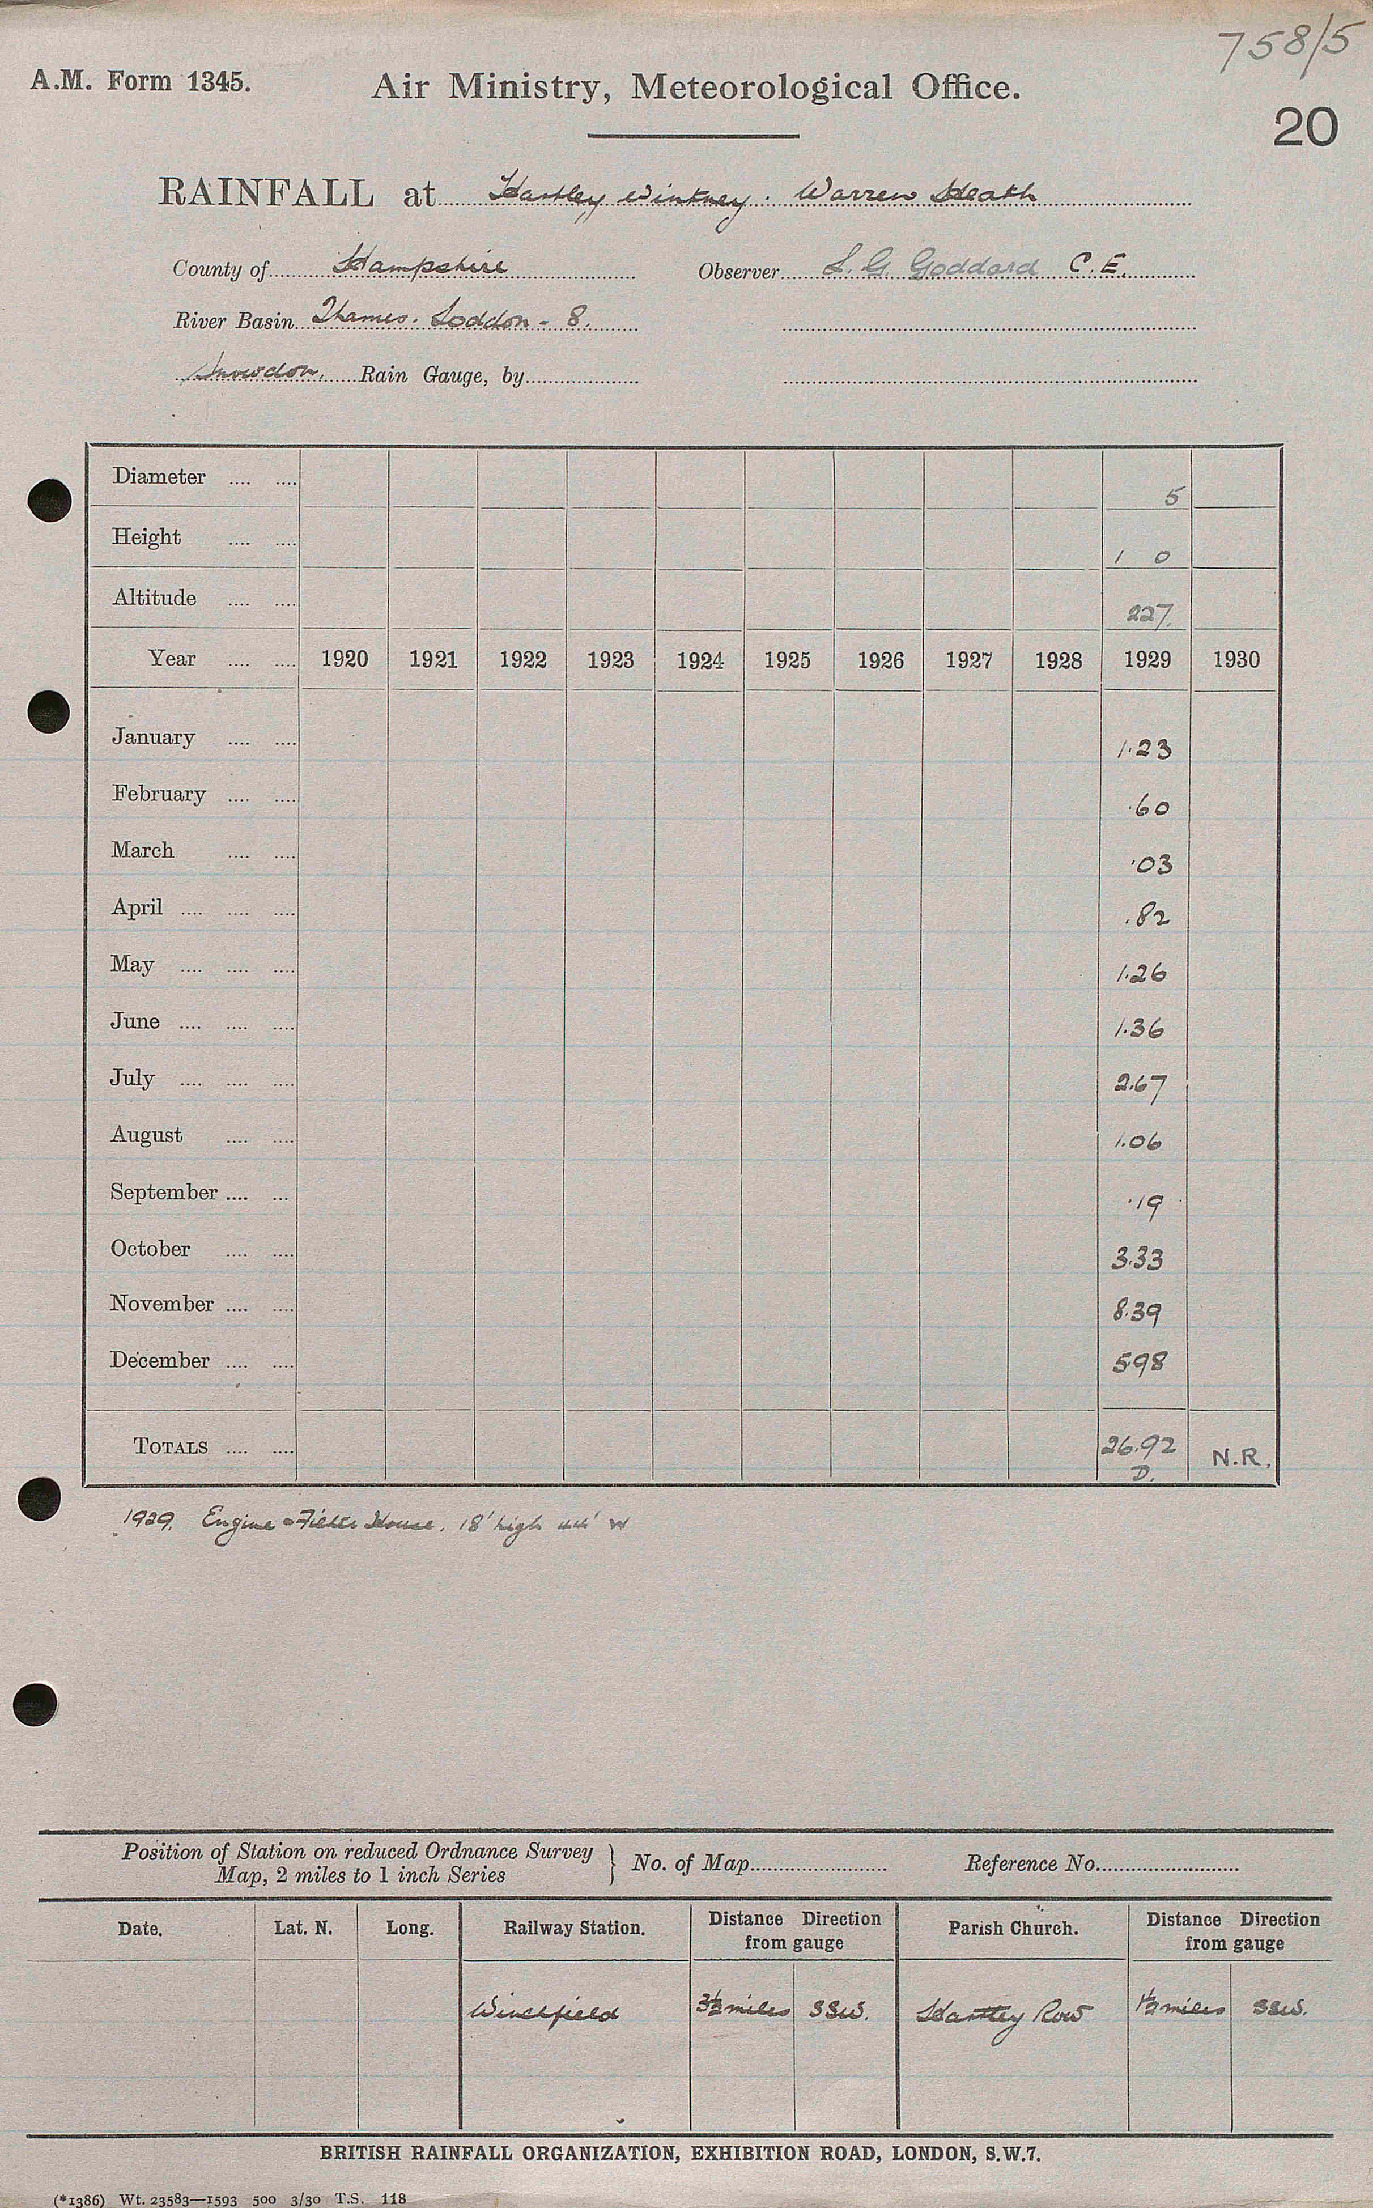 758/5
A.M. Form 1345. Air Ministry, Meteorological Office.
20
RAINFALL at Hartley Wintney. Warren Heath
County of Hampshire Observer L. G. Goddard C.E.
River Basin Thames. Loddon - 8.
Snowdon. Rain Gauge, by
Diameter 5
Height 1 0
Altitude 227.
Year 1920 1921 1922 1923 1924 1925 1926 1927 1928 1929 1930
January 1.23
February .60
March .03
April .82
May 1.26
June 1.36
July 2.67
August 1.06
September .19
October 3.33
November 8.39
December 5.98
TOTALS 26.92 N.R.
D.
1929. Engine & Filter House. 18' high W
Position of Station on reduced Ordnance Survey
Map, 2 miles to 1 inch Series } No. of Map Reference No.
Date. Lat. N. Long. Railway Station. Distance Direction from gauge Parish Church. Distance Direction from gauge
Winchfield 3½ miles SSW. Hartley Row 1½ miles SSW.
BRITISH RAINFALL ORGANIZATION, EXHIBITION ROAD, LONDON, S.W.7.
(*1386) Wt. 23583—1593 500 3/30 T.S. 118